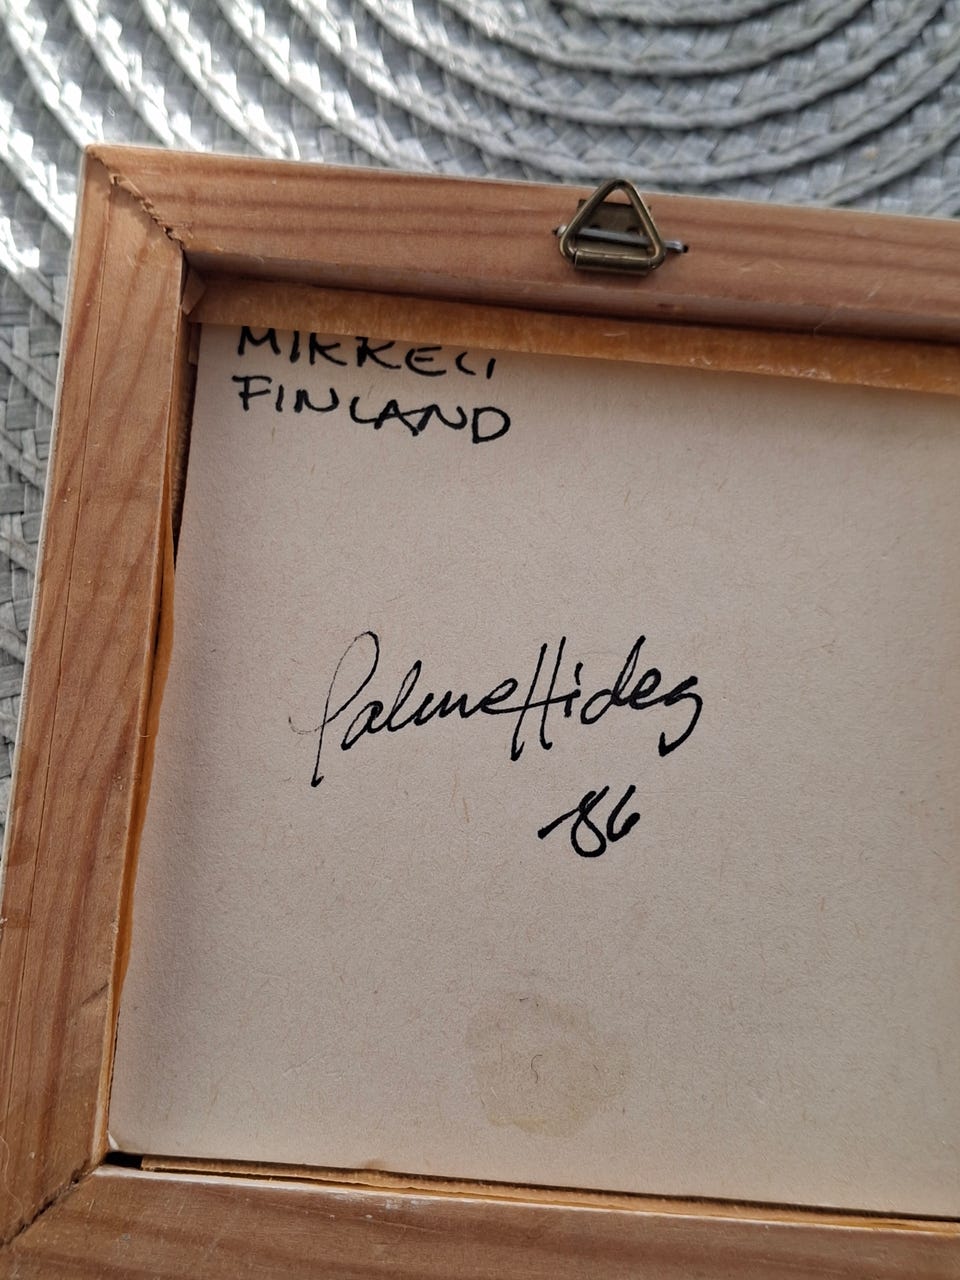 MIKKELI
FINLAND
Palme Hideg
-86